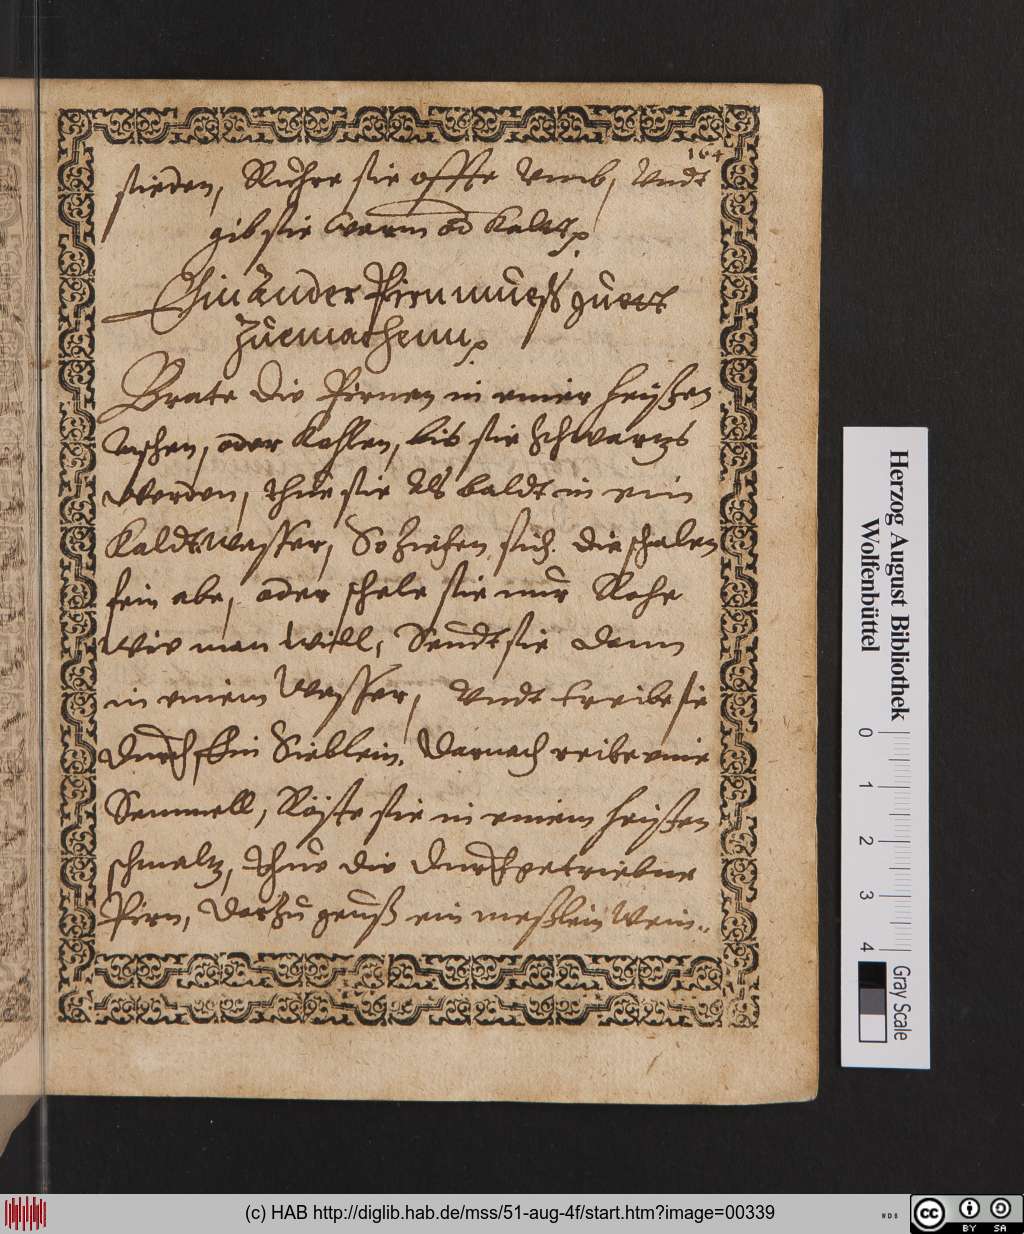 164
sieden, Rühre sie offte vmb, Vndt
gib sie warm od Kaltt.
Ein ander Pirnmueß guett
Zuemachenn.
Brate die Pirnen in einer heyßen
Aschen, oder Kohlen, bis sie schwartz
werden, thue sie Als baldt in ein
Kaldt wasser, So ziehen sich die schalen
fein abe, oder schele sie nur Rohe
wie man will, Seudt sie dann
in einem Wasser, Vndt treibe sie
durch Ein Sieblein, Darnach reibe eine
Semmell, Röste sie in einem heyßen
schmaltz, thue die durchgetriebne
Pirn, Darzu geuß ein meßlein Wein..
Herzog August Bibliothek
Wolfenbüttel
0 1 2 3 4
Gray Scale
(c) HAB http://diglib.hab.de/mss/51-aug-4f/start.htm?image=00339
WDB
cc BY SA